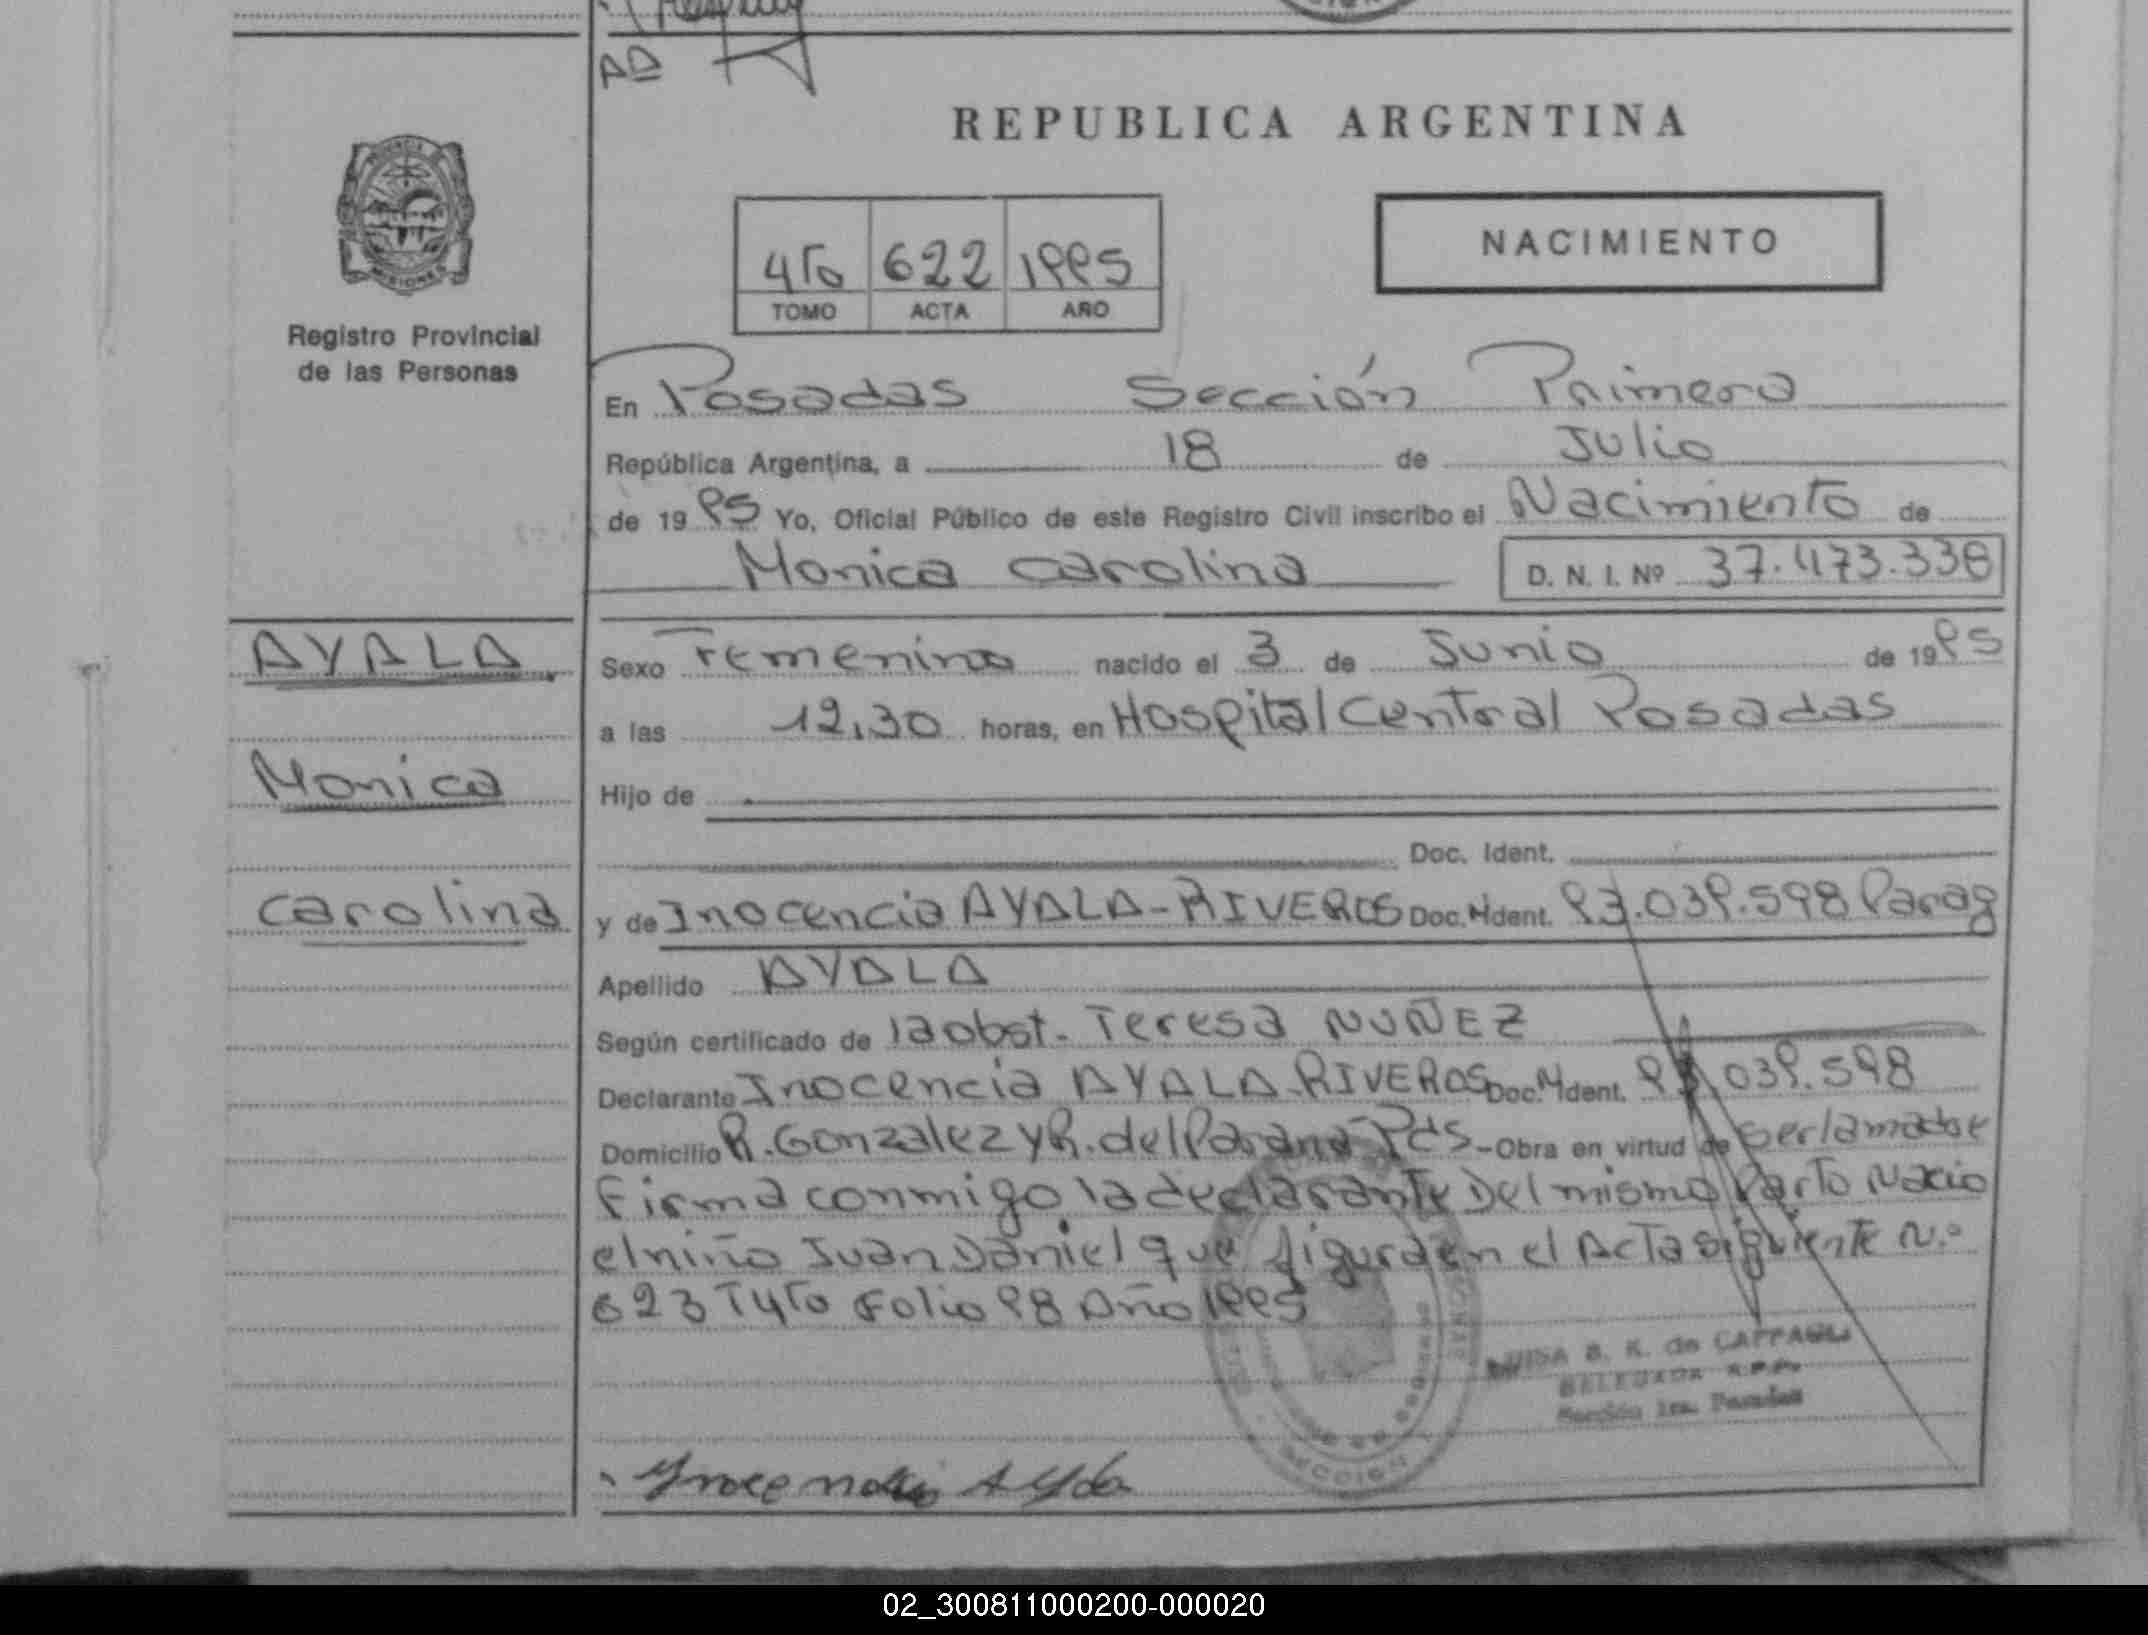 AD
REPUBLICA ARGENTINA
PROVINCIA
MISIONES
4to 622 1995
TOMO ACTA AÑO
NACIMIENTO
Registro Provincial
de las Personas
En Posadas Sección Primera
República Argentina, a 18 de Julio
de 1995 Yo, Oficial Público de este Registro Civil inscribo el Nacimiento de
Monica Carolina D. N. I. Nº 37.473.338
AYALA
Monica
Carolina
Sexo Femenino nacido el 3 de Junio de 1995
a las 12,30 horas, en Hospital Central Posadas
Hijo de
Doc. Ident.
y de Inocencia AYALA-RIVEROS Doc. Ident. 93.039.598 Parag
Apellido AYALA
Según certificado de la obst. Teresa NUÑEZ
Declarante Inocencia AYALA-RIVEROS Doc. Ident. 93.039.598
Domicilio R. Gonzalez y R. del Parana Pdas - Obra en virtud de ser la madre
Firma conmigo la declarante Del mismo Parto Nacio
el niño Juan Daniel que figura en el Acta siguiente N.º
623 T 4to Folio 98 Año 1995
LUISA B. K. de
DELEGADA R.P.P.
Sección 1ra. Posadas
SECCION 1
Inocencia Ayala
02_300811000200-000020